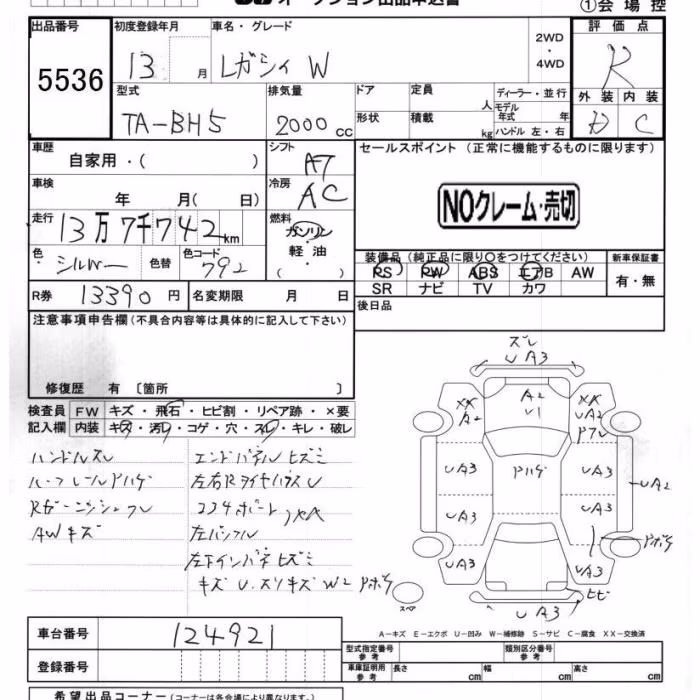 オークション出品申込書
①会場控
出品番号 初度登録年月 車名・グレード 2WD ・ 4WD 評価点
5536 13 月 レガシィ W R
型式 排気量 ドア 定員 人 ディーラー・並行 外装 内装
TA-BH5 2000 cc 形状 積載 kg モデル年式 年 ハンドル 左・右 D C
車歴 自家用・( ) シフト AT セールスポイント (正常に機能するものに限ります)
車検 年 月( 日) 冷房 AC
NOクレーム・売切
走行 13万7千742km 燃料 ガソリン・軽油 ( )
色 シルバー 色替 色コード 792
装備品 (純正品に限り○をつけてください) 新車保証書
PS PW ABS エアB AW 有・無
SR ナビ TV カワ
R券 13390円 名変期限 月 日 後日品
注意事項申告欄 (不具合内容等は具体的に記入して下さい)
修復歴 有 〔箇所 〕
検査員 FW キズ・飛石・ヒビ割・リペア跡・×要
記入欄 内装 キズ・汚レ・コゲ・穴・スレ・キレ・破レ
ハンドルスレ
ルーフレールPハゲ
AWキズ
エンドパネルヒズミ
左右RタイヤハウスU
コアサポート XA
左下インパネヒズミ
キズ U.スリキズ W2
ズレ
UA3
XX A2
A2 U1
XX UA2
UA3 Pハゲ UA3
UA2
UA3 UA3
UA3 UA3
ヒビ
UA3
スペア
A－キズ E－エクボ U－凹み W－補修跡 S－サビ C－腐食 XX－交換済
車台番号 124921
型式指定番号 参考 類別区分番号 参考
登録番号
車庫証明用 参考 長さ cm 幅 cm 高さ cm
希望出品コーナー (コーナーは各会場により異なります。)